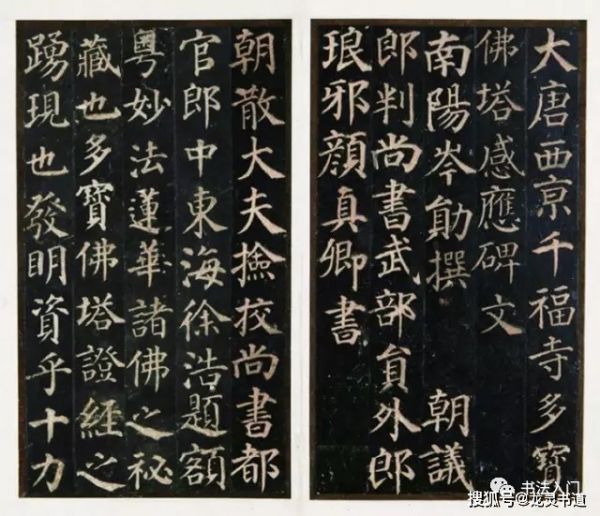 大唐西京千福寺多寶
佛塔感應碑文
南陽岑勛撰 朝議
郎判尚書武部員外郎
琅邪顔真卿書
朝散大夫撿挍尚書都
官郎中東海徐浩題額
粤妙法蓮華諸佛之秘
藏也多寶佛塔證經之
踴現也發明資乎十力
书法入门
搜狐号@龙灵书道